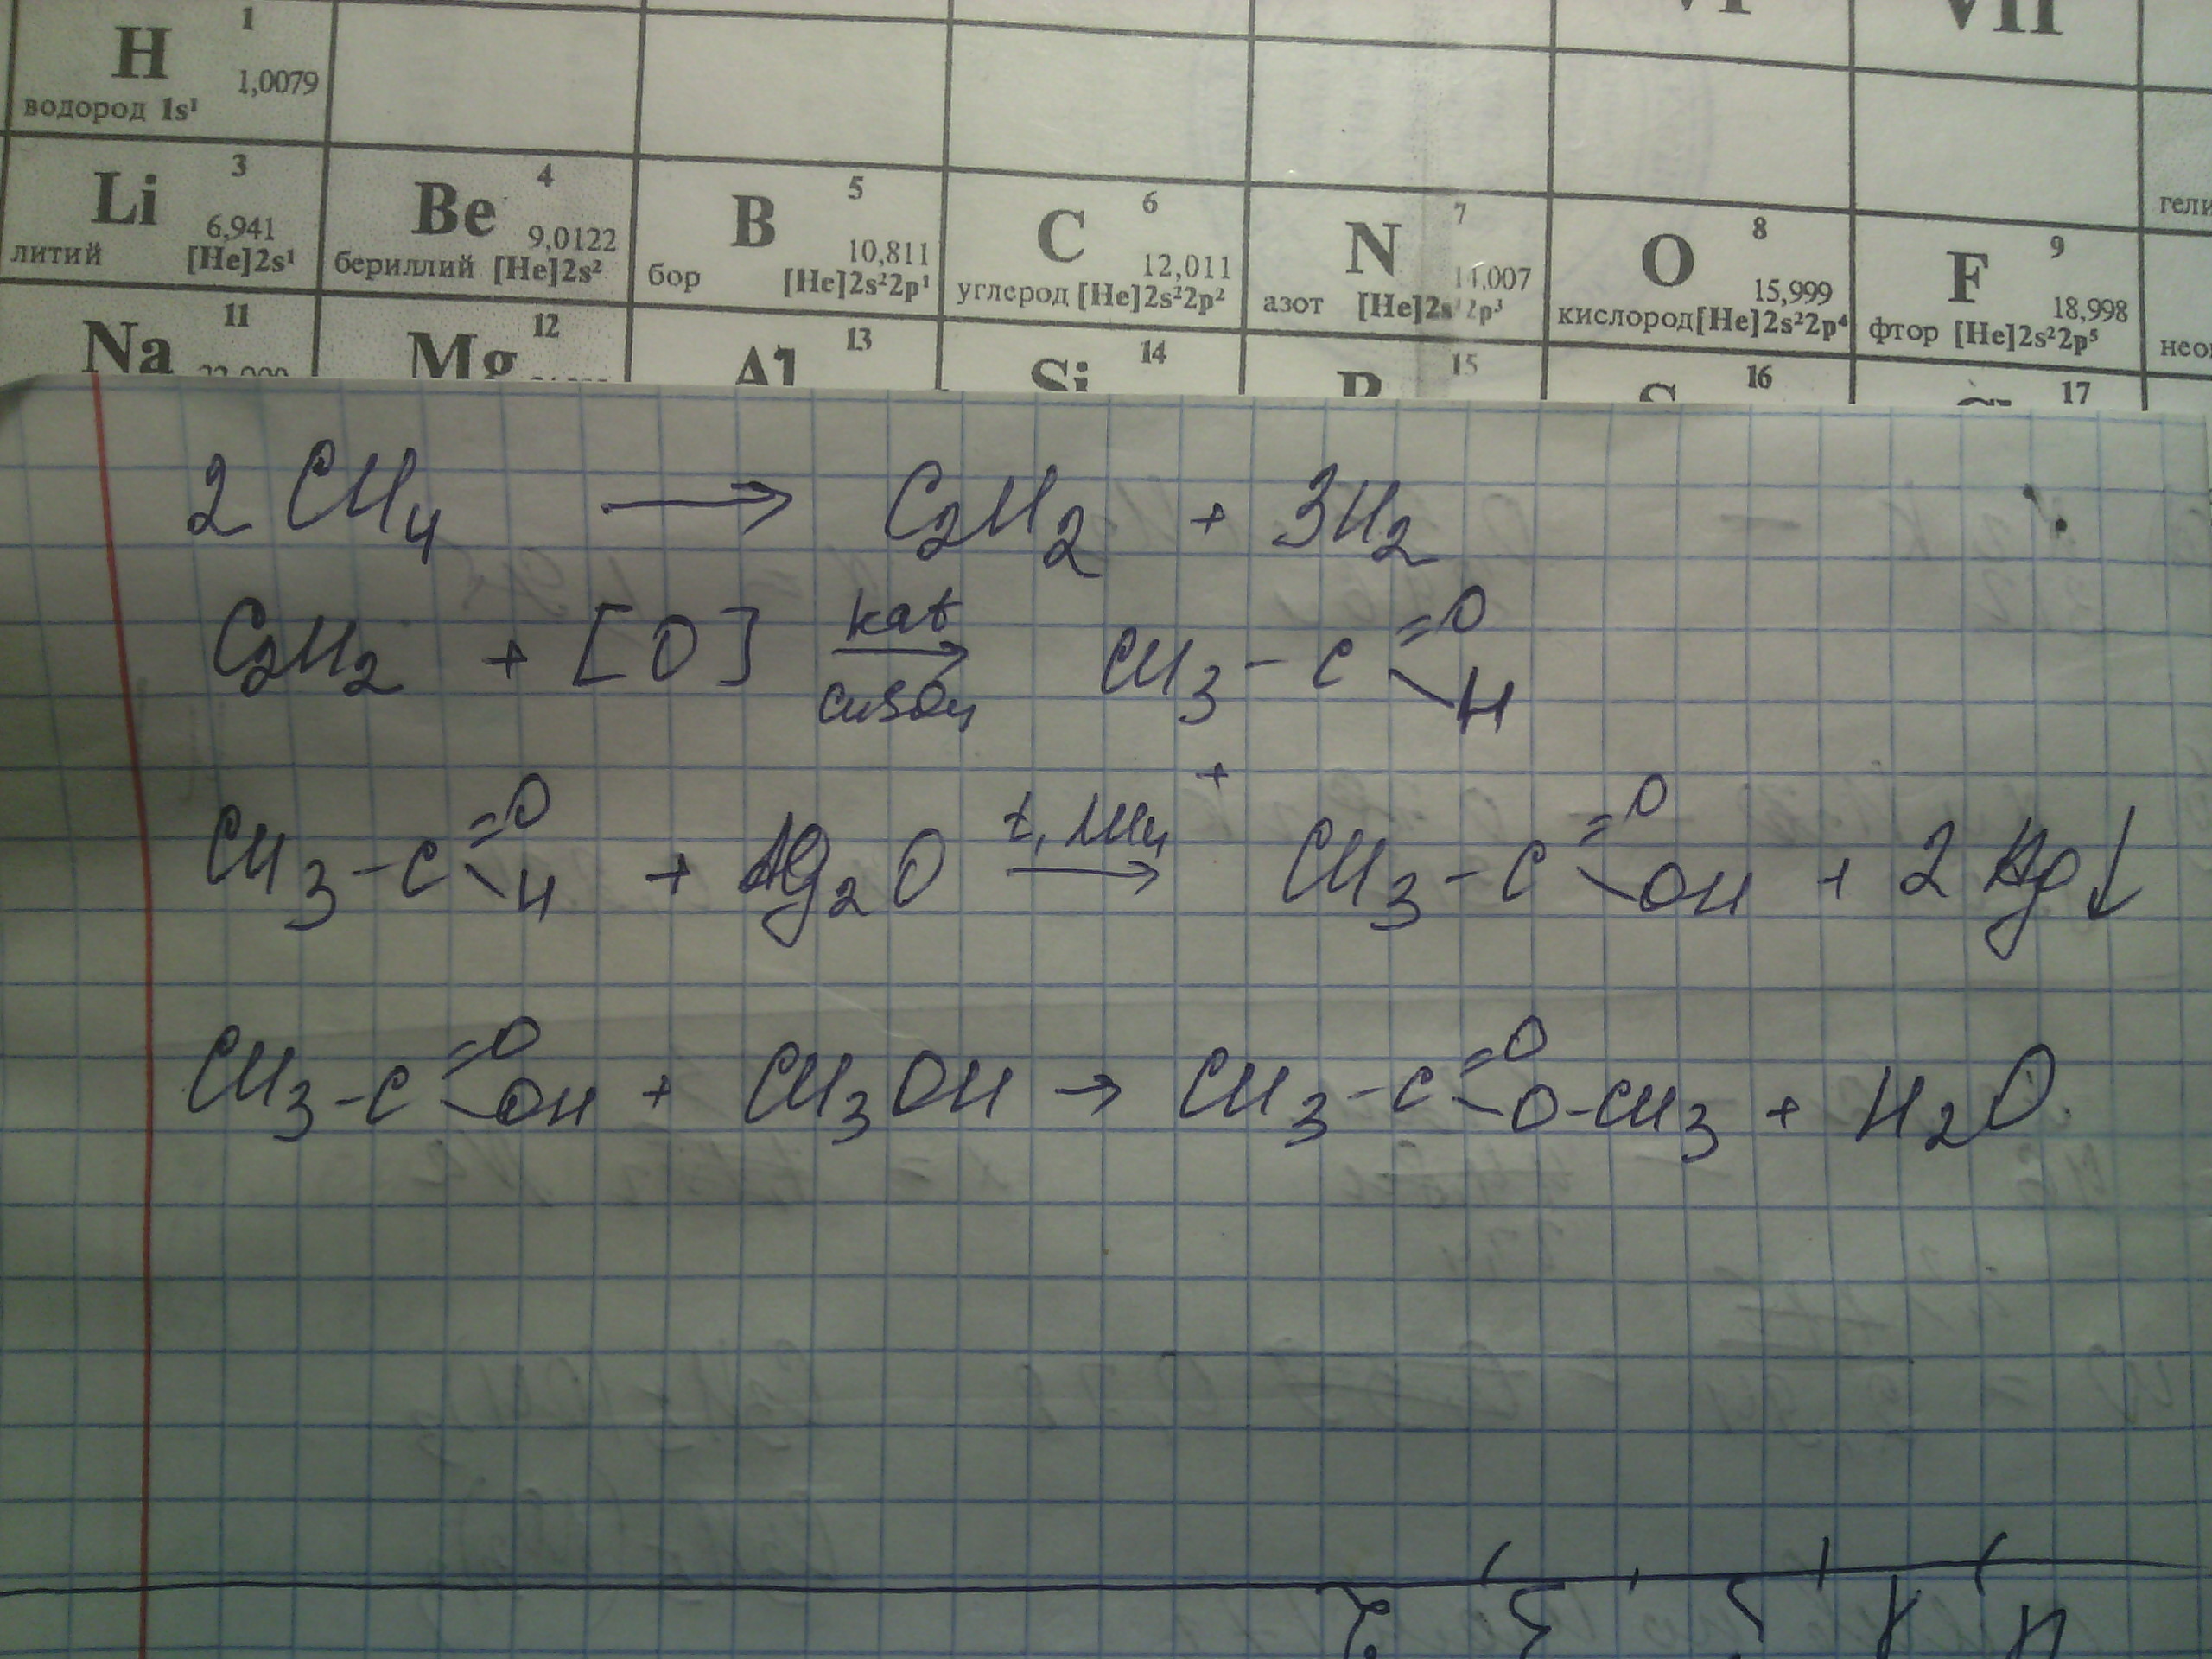 VI VII
H 1 1,0079 водород 1s¹
Li 3 6,941 литий [He]2s¹
Be 4 9,0122 бериллий [He]2s²
B 5 10,811 бор [He]2s²2p¹
C 6 12,011 углерод [He]2s²2p²
N 7 14,007 азот [He]2s²2p³
O 8 15,999 кислород [He]2s²2p⁴
F 9 18,998 фтор [He]2s²2p⁵
Na 11
Mg 12
Al 13
Si 14
P 15
S 16
Cl 17
2CH₄ → C₂H₂ + 3H₂
C₂H₂ + [O] kat → CuSO₄ CH₃-C=O \H
CH₃-C=O \H + Ag₂O t, NH₄⁺ → CH₃-C=O \OH + 2Ag↓
CH₃-C=O \OH + CH₃OH → CH₃-C=O \O-CH₃ + H₂O.